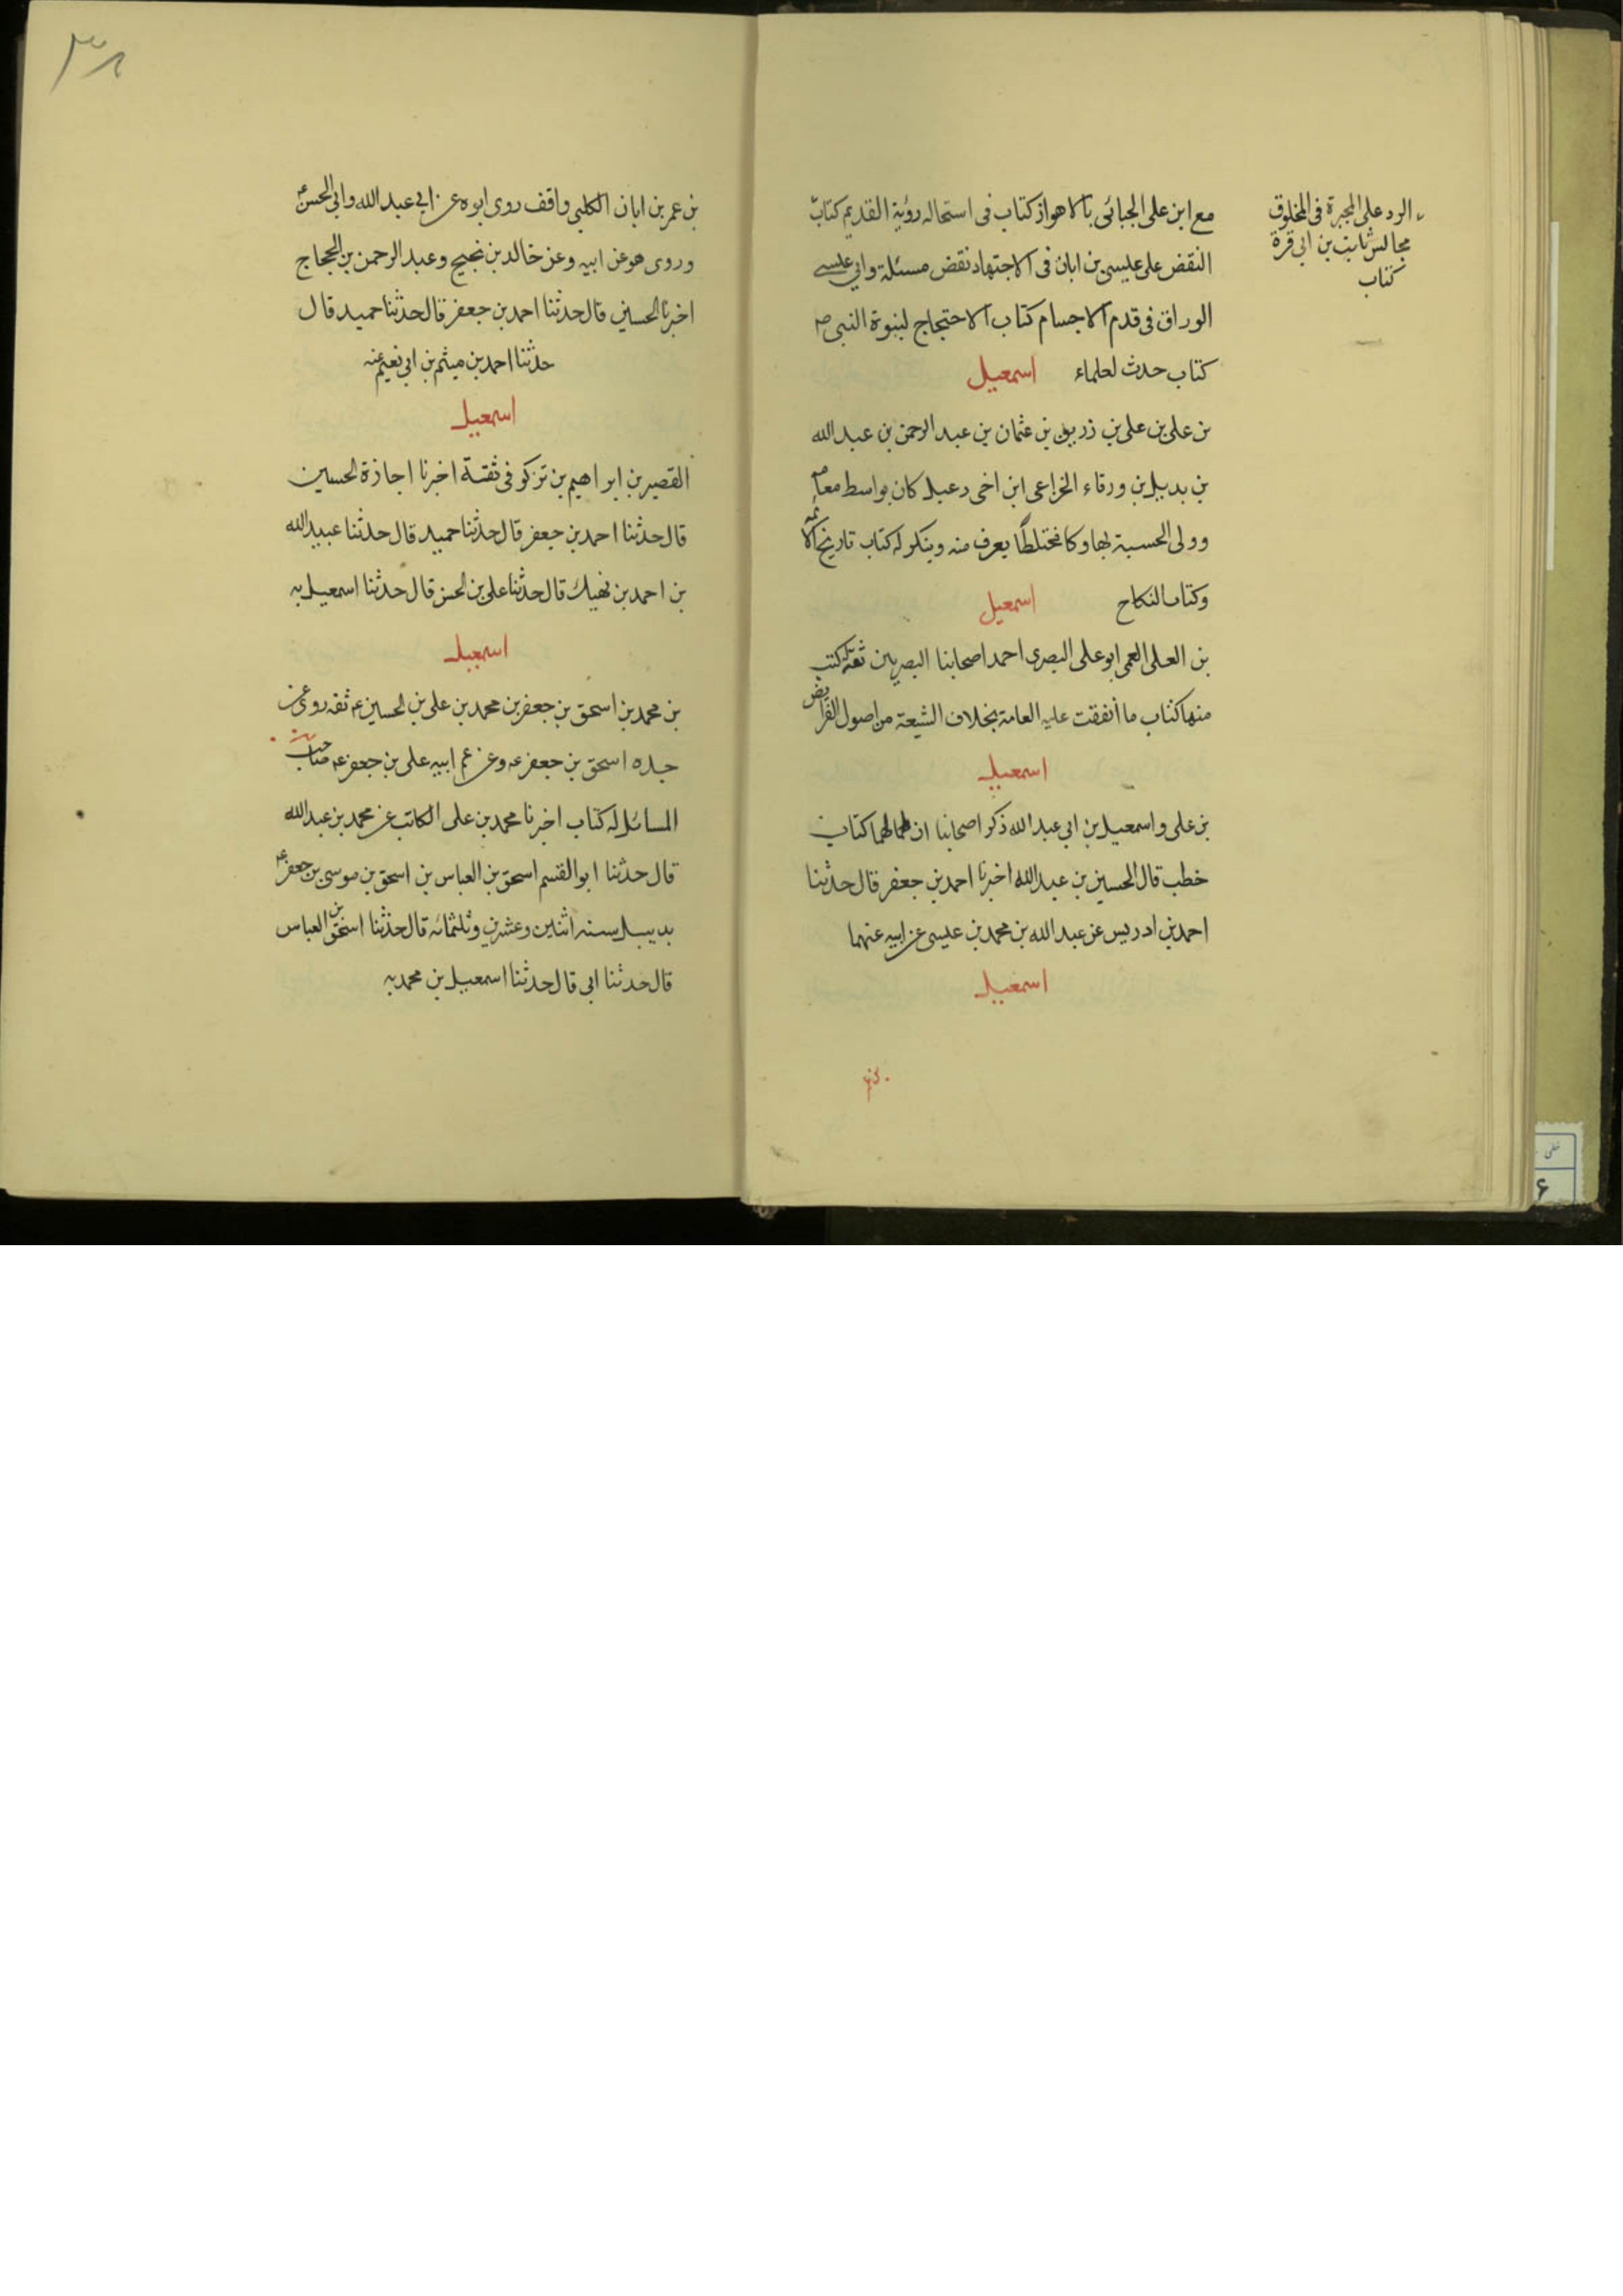 مع ابن على الجبائى بالاهواز كتاب فى استحاله رؤية القديم كتاب
النقض على عليسى بن ابان فى الاجتهاد نقض مسئلة وابي عليسى
الوراق فى قدم الاجسام كتاب الاحتجاج لنبوة النبى ص
كتاب حدث لعلماء اسمعيل
بن على بن على بن زريق بن عثمان بن عبد الرحمن بن عبد الله
بن بديل بن ورقاء الخزاعى ابن اخى دعبل كان بواسط مقامه
وولى الحسبة بها وكا مختلطًا يعرف منه وينكر له كتاب تاريخ الائمه
وكتاب النكاح اسمعيل
بن العلى العمى ابو على البصرى احمد اصحابنا البصريين ثقة له كتب
منها كتاب ما أتفقت عليه العامة بخلاف الشيعة من اصول الفرايض
اسمعيل
بن على واسمعيل بن ابى عبد الله ذكر اصحابنا ان لهما كتاب
خطب قال الحسين بن عبد الله اخبرنا احمد بن جعفر قال حدثنا
احمد بن ادريس عن عبد الله بن محمد بن عليسى عن ابيه عنهما
اسمعيل
الرد على المجبرة فى المخلوق
مجالس ثابت بن ابى قرة
كتاب
٣٨
بن عمر بن ابان الكلبى واقف روى ابوه عن ابي عبد الله وابى الحسن ع
وروى هو عن ابيه وعن خالد بن نجيح وعبد الرحمن بن الحجاج
اخبرنا الحسين قال حدثنا احمد بن جعفر قال حدثنا حميد قال
حدثنا احمد بن ميثم بن ابى نعيم عنه
اسمعيل
القصير بن ابراهيم بن بز كوفى ثقة اخبرنا اجازة لحسين
قال حدثنا احمد بن جعفر قال حدثنا حميد قال حدثنا عبيد الله
بن احمد بن نهيك قال حدثنا على بن الحسن قال حدثنا اسمعيل به
اسمعيل
بن محمد بن اسحق بن جعفر بن محمد بن على بن الحسين ع ثقه روى عن
جده اسحق بن جعفر ع وعن عم ابيه على بن جعفر ع صاحب
المسائل له كتاب اخبرنا محمد بن على الكاتب عن محمد بن عبد الله
قال حدثنا ابو القسم اسحق بن العباس بن اسحق بن موسى بن جعفر ع
بديبيل سنه اثنين وعشرين وثلثمائه قال حدثنا اسحق بن العباس
قال حدثنا ابى قال حدثنا اسمعيل بن محمد به